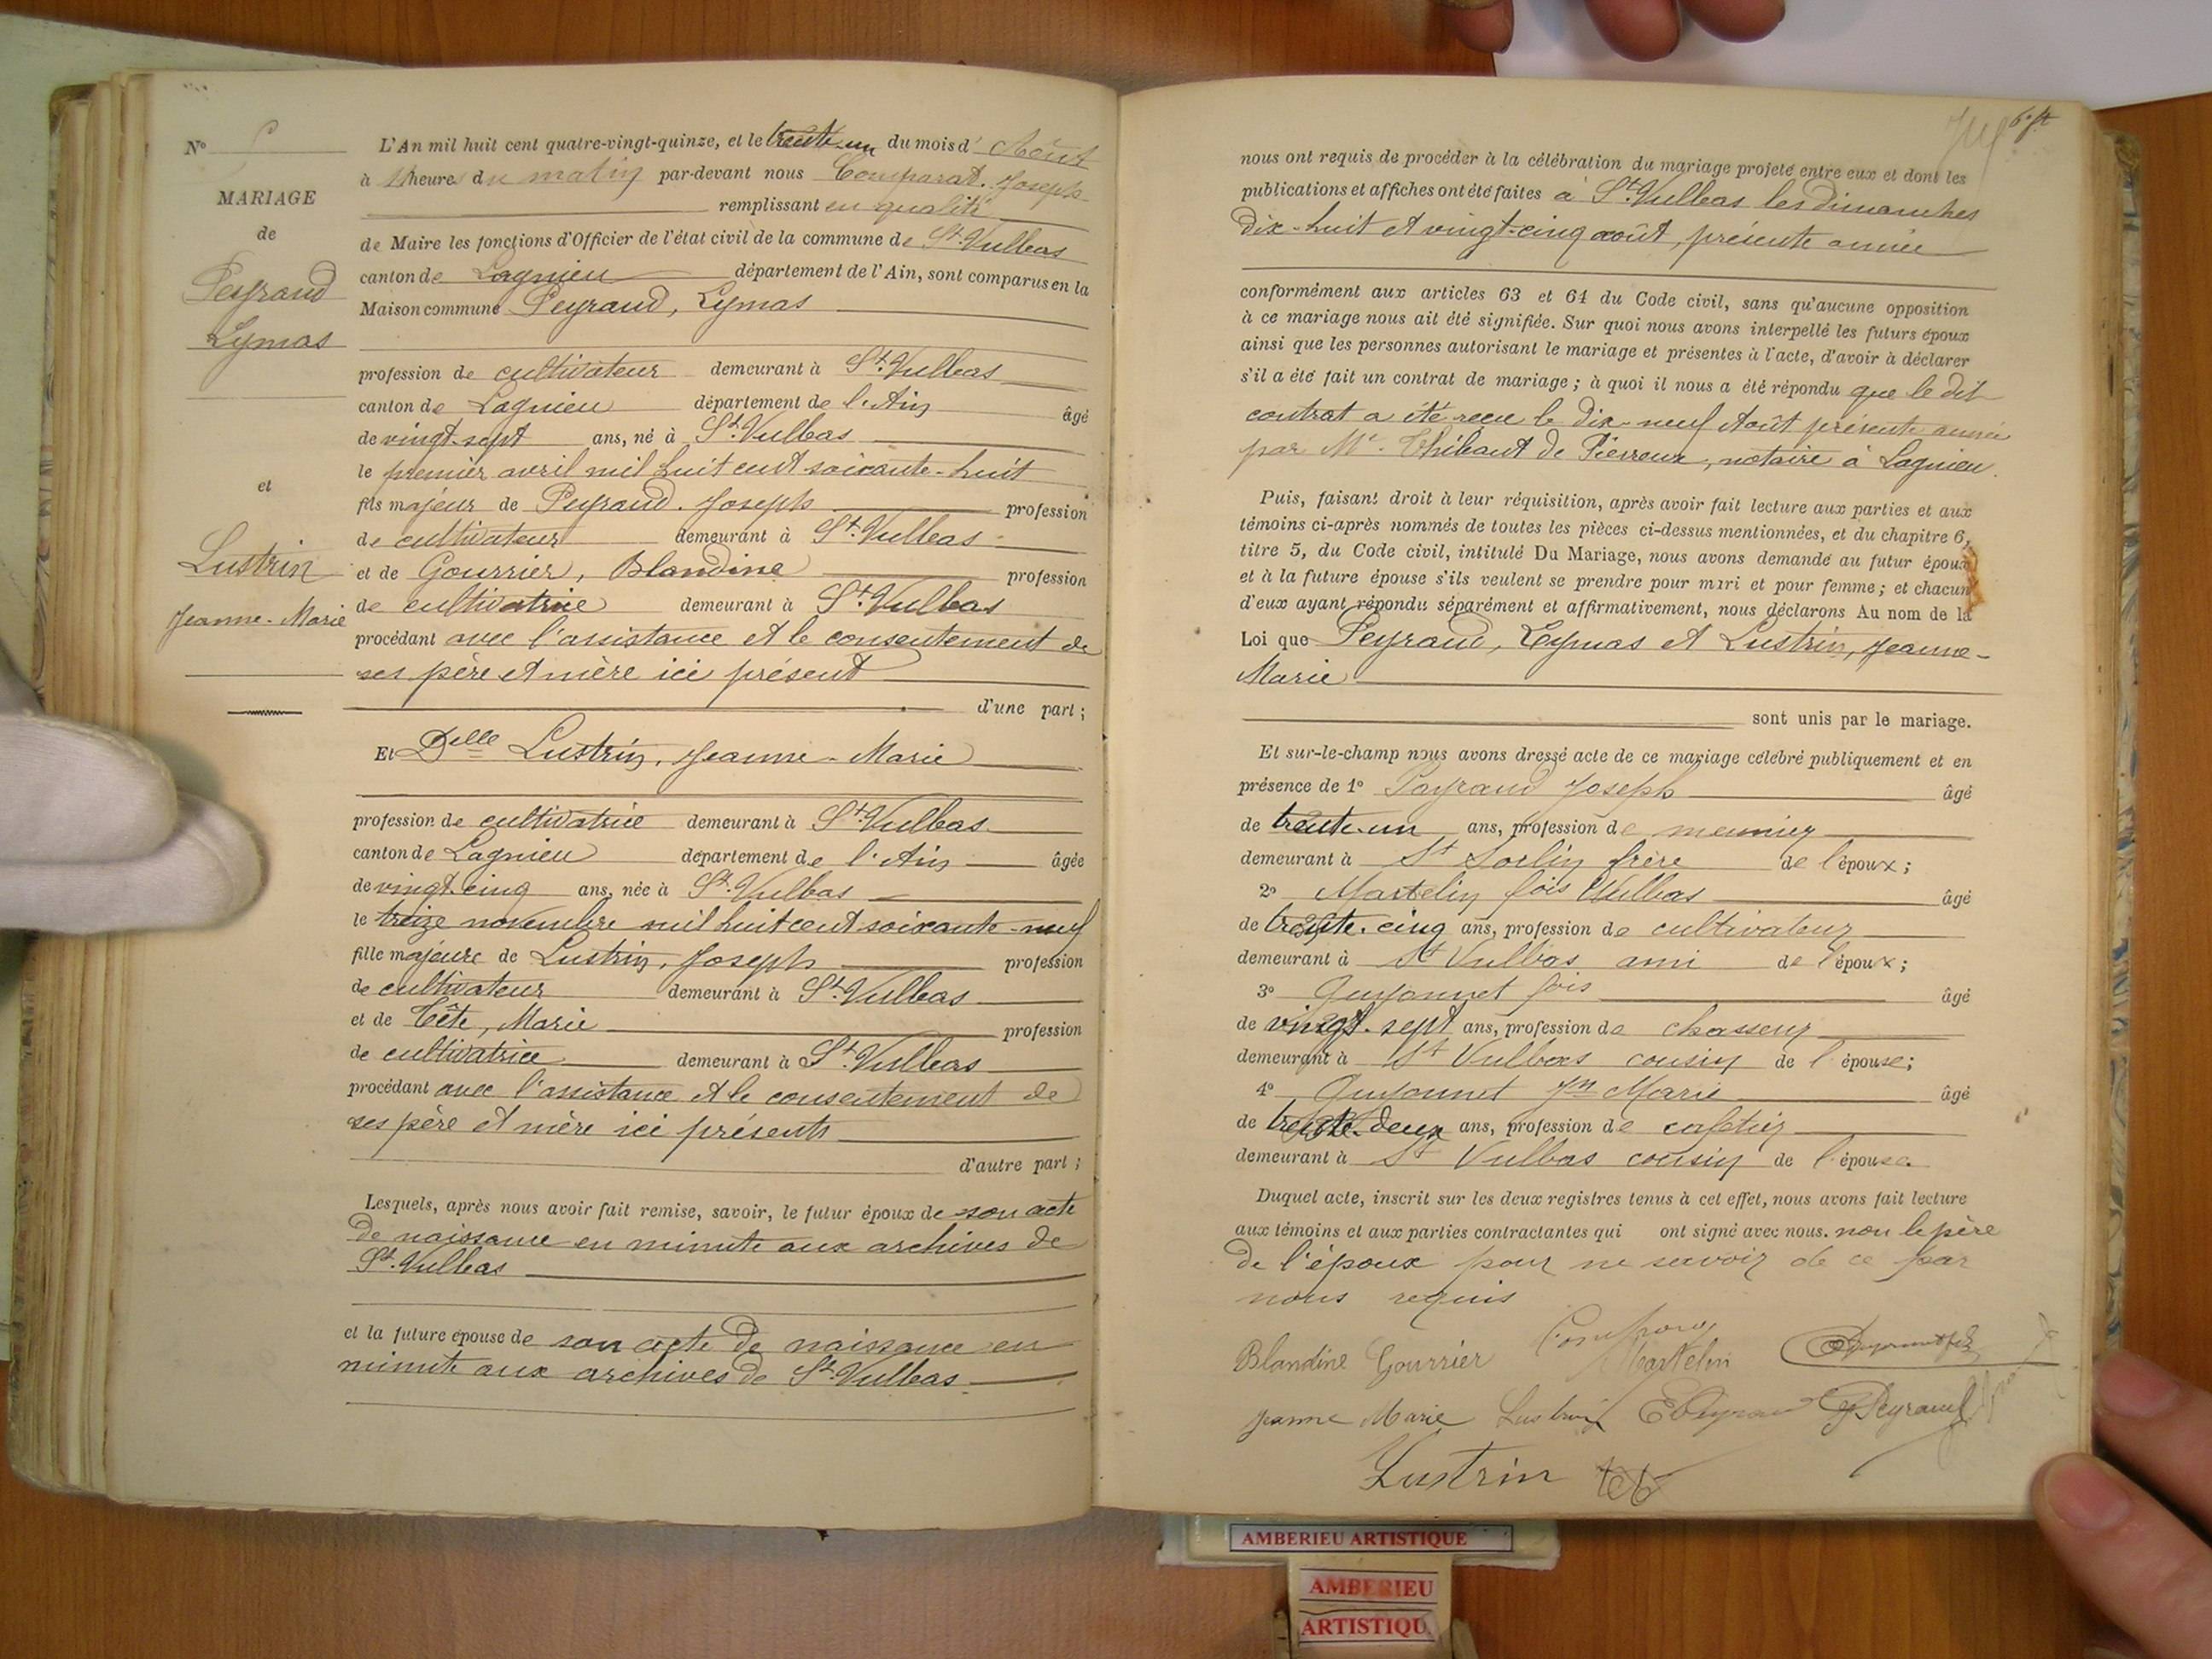 N° 6
MARIAGE
de
Peyrand
Eymas
et
Lustrin
Jeanne-Marie
L'An mil huit cent quatre-vingt-quinze, et le trente-un du mois d'Août
à heures du matin par-devant nous Comparat. Joseph
remplissant en qualité
de Maire les fonctions d'Officier de l'état civil de la commune de St. Vulbas
canton de Lagnieu département de l'Ain, sont comparus en la
Maison commune Peyraud, Eymas
profession de cultivateur demeurant à St. Vulbas
canton de Lagnieu département de l'Ain âgé
de vingt-sept ans, né à St. Vulbas
le premier avril mil huit cent soixante-huit
fils majeur de Peyraud. Joseph profession
de cultivateur demeurant à St. Vulbas
et de Gourrier, Blandine profession
de cultivatrice demeurant à St. Vulbas
procédant avec l'assistance et le consentement de
ses père et mère ici présent
d'une part;
Et Delle Lustrin, Jeanne-Marie
profession de cultivatrice demeurant à St. Vulbas
canton de Lagnieu département de l'Ain âgée
de vingt-cinq ans, née à St. Vulbas
le treize novembre mil huit cent soixante-neuf
fille majeure de Lustrin, Joseph profession
de cultivateur demeurant à St. Vulbas
et de Tête, Marie profession
de cultivatrice demeurant à St. Vulbas
procédant avec l'assistance et le consentement de
ses père et mère ici présents
d'autre part;
Lesquels, après nous avoir fait remise, savoir, le futur époux de son acte
de naissance en minute aux archives de
St. Vulbas
et la future épouse de son acte de naissance en
minute aux archives de St. Vulbas
nous ont requis de procéder à la célébration du mariage projeté entre eux et dont les
publications et affiches ont été faites à St. Vulbas les dimanches
dix-huit et vingt-cinq août, présente année
conformément aux articles 63 et 64 du Code civil, sans qu'aucune opposition
à ce mariage nous ait été signifiée. Sur quoi nous avons interpellé les futurs époux
ainsi que les personnes autorisant le mariage et présentes à l'acte, d'avoir à déclarer
s'il a été fait un contrat de mariage; à quoi il nous a été répondu que le dit
contrat a été reçu le dix-neuf Août présente année
par Me. Thibaut de Pierreux, notaire à Lagnieu.
Puis, faisant droit à leur réquisition, après avoir fait lecture aux parties et aux
témoins ci-après nommés de toutes les pièces ci-dessus mentionnées, et du chapitre 6,
titre 5, du Code civil, intitulé Du Mariage, nous avons demandé au futur époux
et à la future épouse s'ils veulent se prendre pour mari et pour femme; et chacun
d'eux ayant répondu séparément et affirmativement, nous déclarons Au nom de la
Loi que Peyraud, Eymas et Lustrin, Jeanne-
Marie
sont unis par le mariage.
Et sur-le-champ nous avons dressé acte de ce mariage célébré publiquement et en
présence de 1° Payraud Joseph âgé
de trente-un ans, profession de meunier
demeurant à St Sorlin frère de l'époux;
2° Martelin fois Vulbas âgé
de trente-cinq ans, profession de cultivateur
demeurant à St Vulbas ami de l'époux;
3° Guyonnet fois âgé
de vingt-sept ans, profession de chasseur
demeurant à St Vulbas cousin de l'épouse;
4° Guyonnet Jn Marie âgé
de trente-deux ans, profession de cafetier
demeurant à St Vulbas cousin de l'épouse.
Duquel acte, inscrit sur les deux registres tenus à cet effet, nous avons fait lecture
aux témoins et aux parties contractantes qui ont signé avec nous. non le père
de l'époux pour ne savoir de ce par
nous requis
Blandine Gourrier Martelin
Jeanne Marie Lustrin EPeyraud JPeyraud
Lustrin tet
AMBERIEU ARTISTIQUE
AMBERIEU
ARTISTIQU